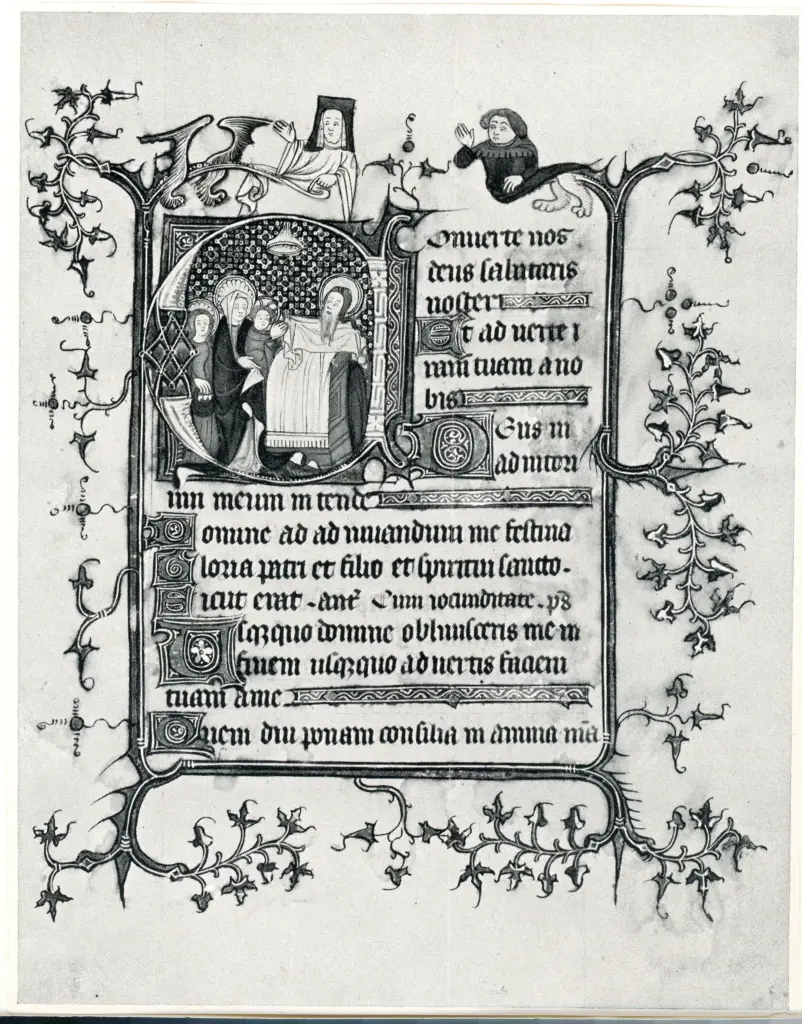 Onuerte nos
deus salutaris
noster
Et ad uerte i
ram tuam a no
bis
Deus in
adiutori
um meum in tende
Domine ad ad iuuandum me festina
Gloria patri et filio et spiritui sancto.
Sicut erat. ant̄ Cum iocunditate. ps̄
Usqꝫquo domine obliuisceris me in
finem usqꝫquo ad uertis faciem
tuam a me
Quem diu ponam consilia in anima mea